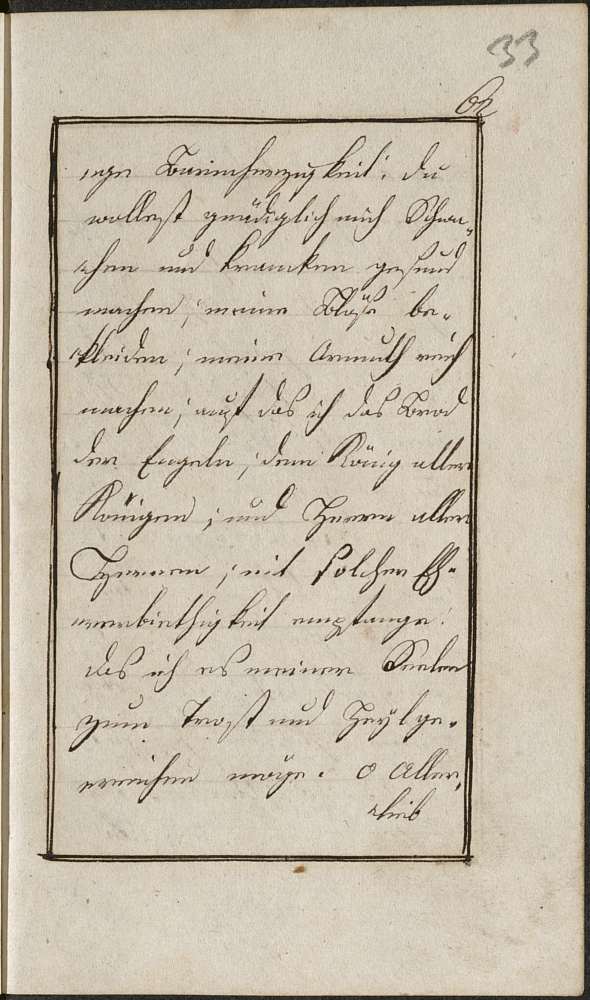 33
62
ige Barmherzigkeit: du
wollest gnädiglich mich Schwa=
chen und krancken gesund
machen; meine Blöse be=
kleiden; meine Armuth reich
machen; auf das ich das Brod
der Engeln; dem König aller
Königen; und Herrn aller
Herren; mit solcher Eh=
rerbiethigkeit empfange:
das ich es meiner Seelen
zum Trost und Heyl ge=
reichen möge. O Aller=
lieb